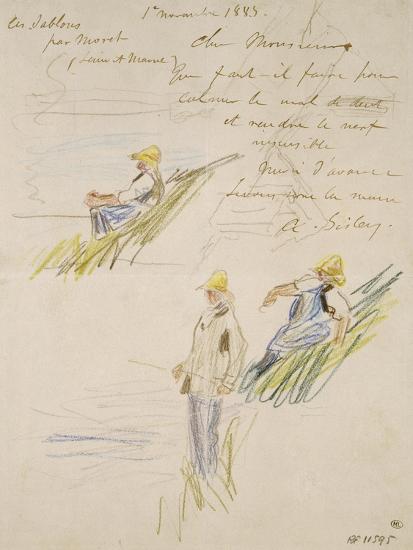 1er novembre 1883.
Les Sablons
par Moret
(Seine et Marne)
Cher Monsieur
Que faut-il faire pour
calmer le mal de dent
et rendre le nerf
insensible
Merci d'avance
la main
A. Sisley.
RF 11595